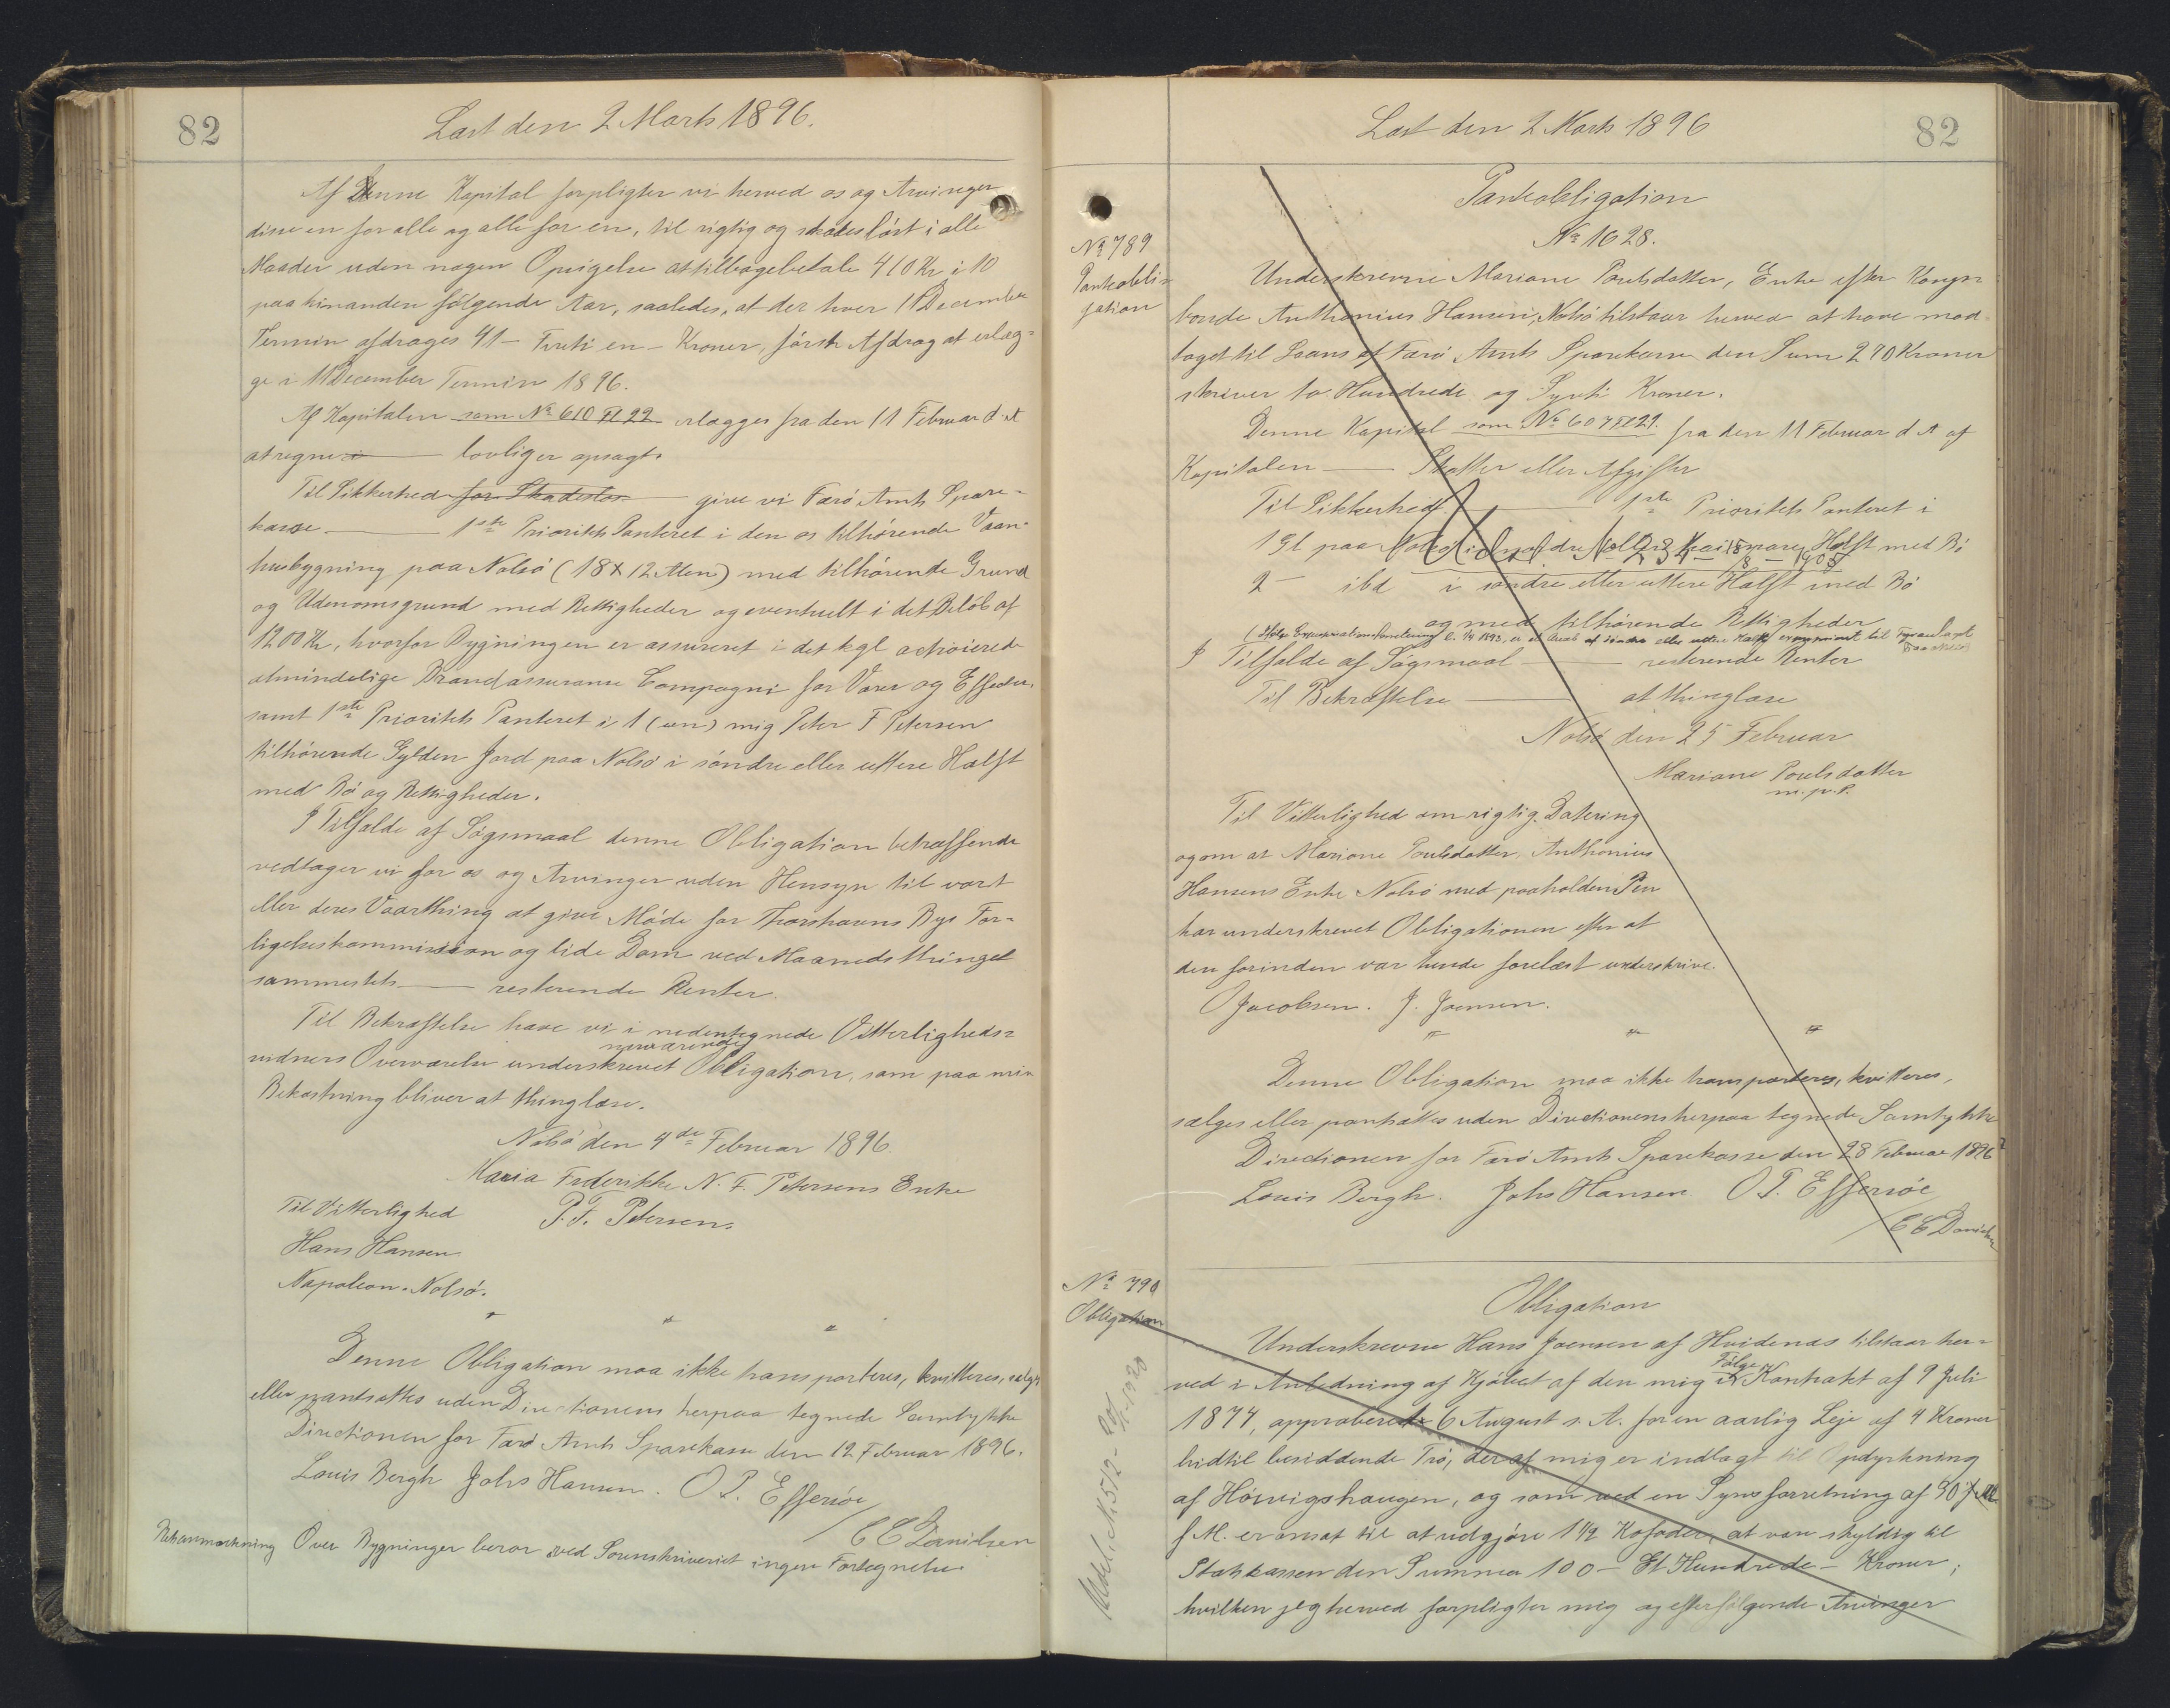 82
Læst den 2 Marts 1896.
Af Denne Kapital forpligter vi herved os og Arvinger
disse en for alle og alle for en, til rigtig og skadesløst i alle
Maader uden nogen Opsigelse at tilbagebetale 410 Kr i 10
paa hinanden følgende Aar, saaledes, at der hver 11 December
Termin afdrages 41 - Fyrreti en - Kroner, første Afdrag at erlæg-
ge i 11 December Termin 1896.
Af Kapitalen som No 610 Fl 22 erlægges fra den 11 Februar d. A
at regne — lovliger opsagt.
Til Sikkerhed for Skadesløs — give vi Færø Amts Spare-
kasse — 1ste Prioritets Panteret i den os tilhørende Vaan-
husbygning paa Nolsø (18 x 12 Alen) med tilhørende Grund
og Udenomsgrund med Rettigheder og eventuelt i det Beløb af
1200 Kr, hvorfor Bygningen er assureret i det kgl octroierede
almindelige Brandassurance Compagni for Varer og Effecter,
samt 1ste Prioritets Panteret i 1 (een) mig Peter F Petersen
tilhørende Gylden Jord paa Nolsø i søndre eller yttere Halft
med Bø og Rettigheder.
I Tilfælde af Søgsmaal denne Obligation betræffende
vedtager vi for os og Arvinger uden Hensyn til vort
eller deres Værthing at give Møde for Thorshavns Bys For-
ligelseskommission og lide Dom ved Maanedsthinget
sammesteds — resterende Renter.
Til Bekræftelse have vi i nedentegnede Vitterligheds-
nærværende
vidners Overværelse underskrevet Obligation, som paa min
Bekostning bliver at thinglæse.
Nolsø den 4de Februar 1896.
Maria Frderikke N. F. Petersens Enke
Til Vitterlighed P. F. Petersen.
Hans Hansen
Napoleon. Nolsø.
Denne Obligation maa ikke transporteres, kvitteres, sælges
eller pantsættes uden Directionens herpaa tegnede Samtykke
Directionen for Færø Amts Sparekasse den 12 Februar 1896.
Louis Bergh Johs Hansen. O P. Effersøe
/ C C Danielsen
Retsanmærkning Over Bygninger beror ved Sorenskriveriet ingen Fortegnelse
82
Læst den 2 Marts 1896
No 789
Panteobli-
gation
Panteobligation
No 1628.
Underskrevne Mariane Poulsdatter, Enke efter Kongs-
bonde Anthonius Hansen, Nolsø tilstaar herved at have mod-
taget til Laans af Færø Amts Sparekasse den Sum 270 Kroner
skriver to Hundrede og Syvti Kroner.
Denne Kapital som No 607 Fl 21. fra den 11 Februar d. A af
Kapitalen — Skatter eller Afgifter
Til Sikkerhed — 1ste Prioritets Panteret i
1 Gl paa Nolsø i Halft med Bø
2 - ibd i søndre eller yttere Halft med Bø
og med tilhørende Rettigheder
I Tilfælde af Søgsmaal — resterende Renter
Til Bekræftelse — at thinglæse
Nolsø den 25 Februar
Mariane Poulsdatter
m. p. P.
Til Vitterlighed om rigtig Datering
og om at Mariane Poulsdatter, Anthonius
Hansens Enke Nolsø med paaholden Pen
har underskrevet Obligationen efter at
den forinden var hende forelæst underskrive.
O Jacobsen. J. Joensen.
Denne Obligation maa ikke transporteres, kvitteres,
sælges eller pantsættes uden Directionens herpaa tegnede Samtykke
Directionen for Færø Amts Sparekasse den 28 Februar 1896
Louis Bergh. Johs Hansen O P. Effersøe
/ C C Danielsen
No 790
Obligation
Obligation
Underskrevne Hans Joensen af Hvidenæs tilstaar her-
Følge
ved i Anledning af Kjøbet af den mig i Kontrakt af 9 Juli
1874, approberede 6 August s. A. for en aarlig Leje af 4 Kroner
hidtil besiddende Trø, der af mig er indlagt til Opdyrkning
af Hørvigshaugen, og som ved en Synsforretning af 30
f. M. er ansat til at udgjøre 1 1/2 Kofoder, at være skyldig til
Statskassen den Summa 100 - Et Hundrede - Kroner;
hvilken jeg herved forpligter mig og efterfølgende Arvinger
Udsl. No 512 - 20/ - 1920